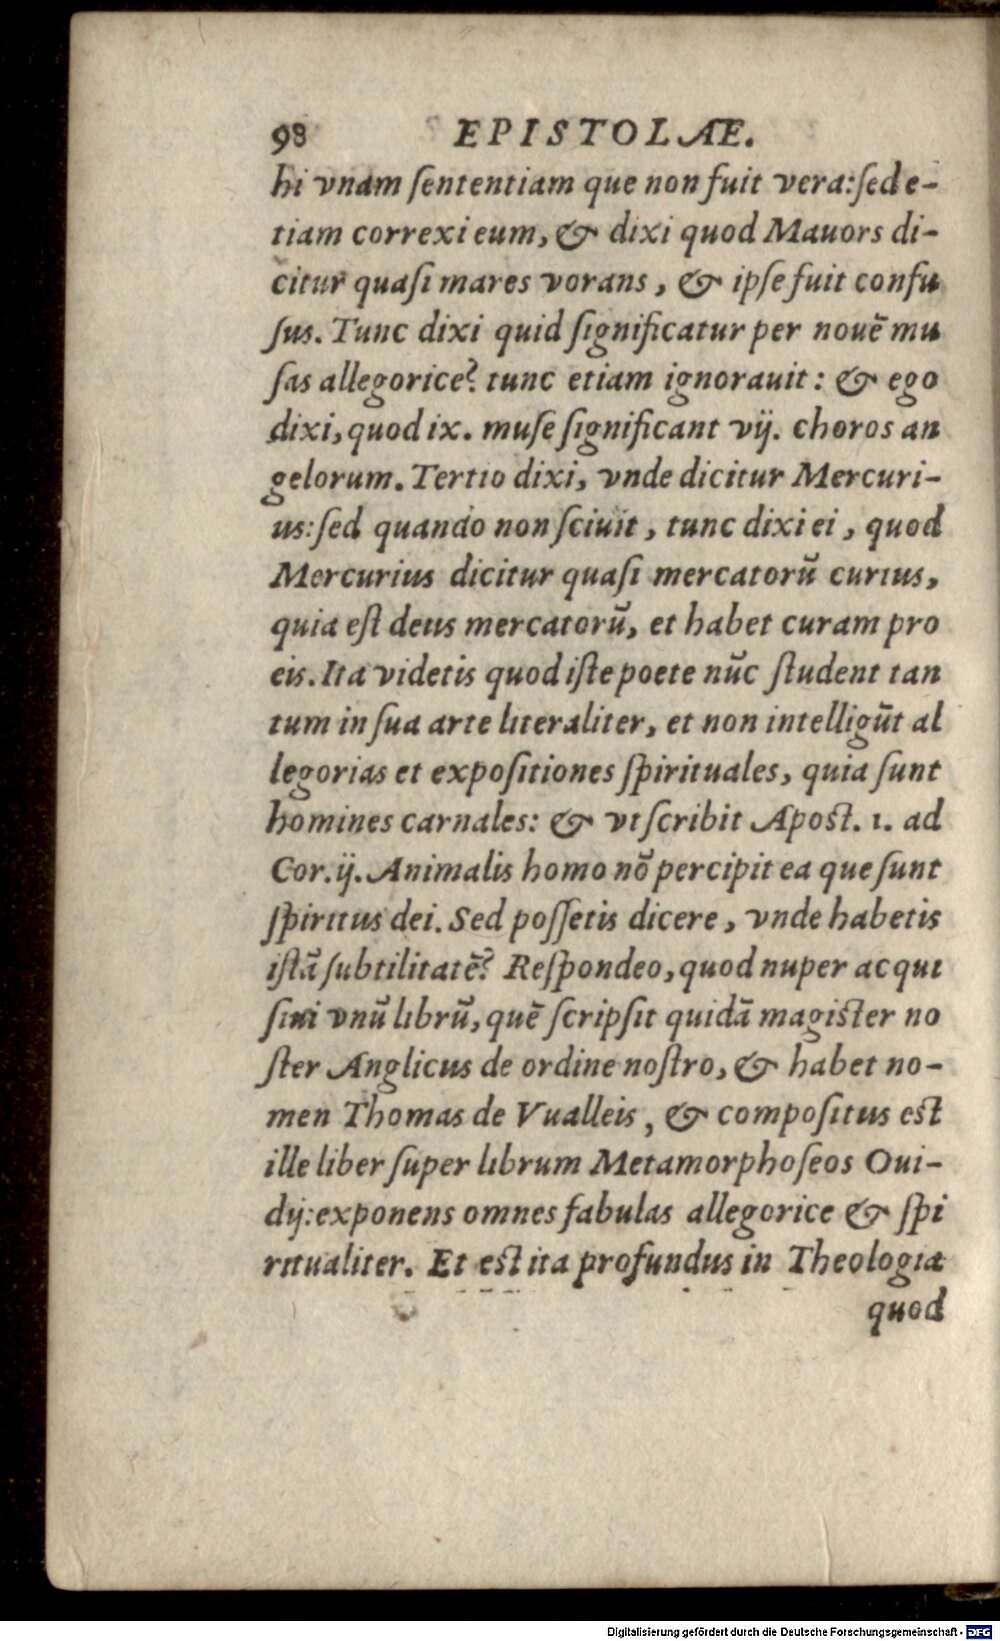 98 EPISTOLÆ.
hi vnam ſententiam que non fuit vera:ſed e-
tiam correxi eum, & dixi quod Mauors di-
citur quaſi mares vorans, & ipſe fuit confu
ſus. Tunc dixi quid ſignificatur per nouē mu
ſas allegorice? tunc etiam ignorauit: & ego
dixi, quod ix. muſe ſignificant vij. choros an
gelorum. Tertio dixi, vnde dicitur Mercuri-
us:ſed quando non ſciuit, tunc dixi ei, quod
Mercurius dicitur quaſi mercatorū curius,
quia eſt deus mercatorū, et habet curam pro
eis. Ita videtis quod iſte poete nūc ſtudent tan
tum in ſua arte literaliter, et non intelligūt al
legorias et expoſitiones ſpirituales, quia ſunt
homines carnales: & vt ſcribit Apoſt. 1. ad
Cor. ij. Animalis homo nō percipit ea que ſunt
ſpiritus dei. Sed poſſetis dicere, vnde habetis
iſtā ſubtilitatē? Reſpondeo, quod nuper acqui
ſiui vnū librū, quē ſcripſit quidā magiſter no
ſter Anglicus de ordine noſtro, & habet no-
men Thomas de Vualleis, & compoſitus eſt
ille liber ſuper librum Metamorphoſeos Oui-
dij:exponens omnes fabulas allegorice & ſpi
ritualiter. Et eſt ita profundus in Theologia
quod
Digitalisierung gefördert durch die Deutsche Forschungsgemeinschaft - DFG